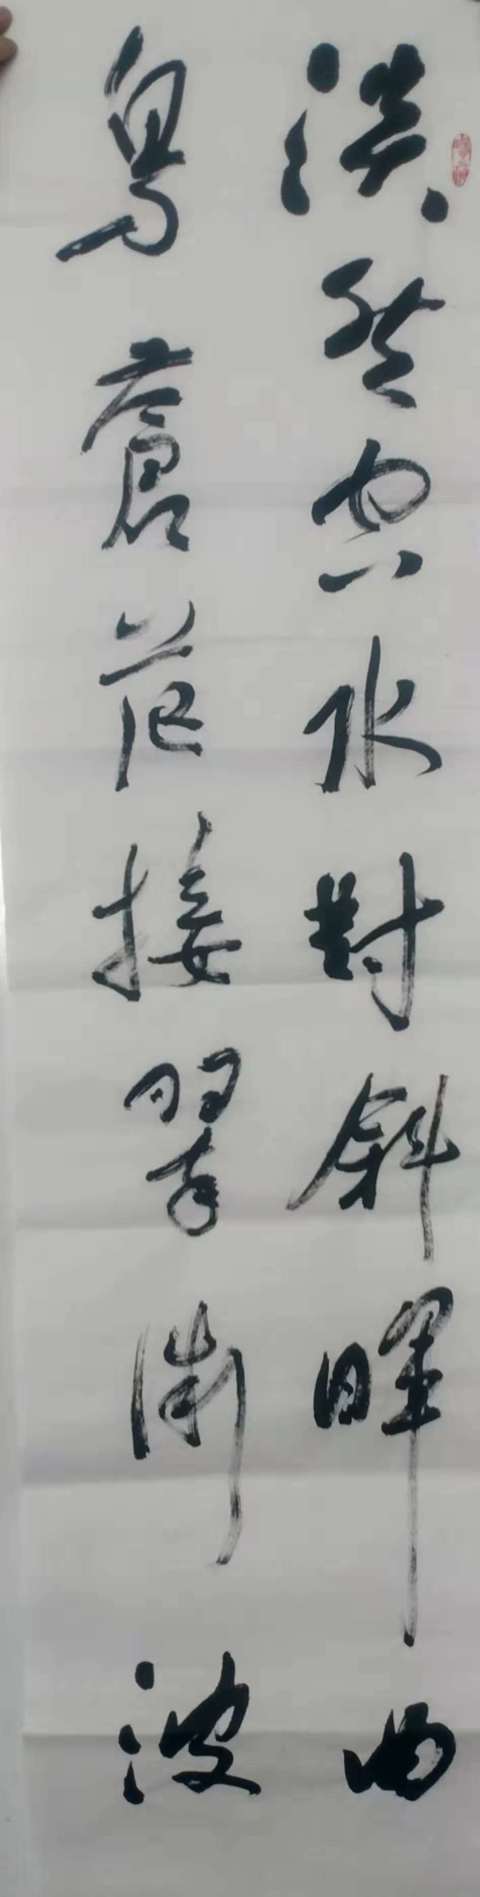 淡然空水對斜暉曲
島蒼茫接翠微波